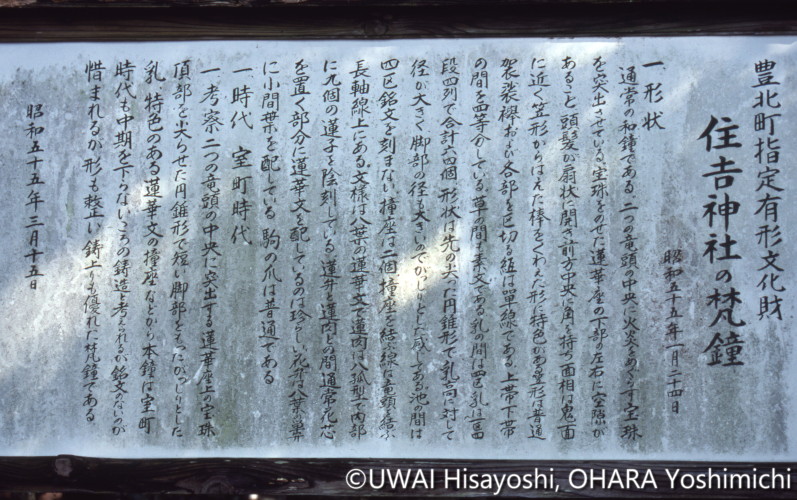 豊北町指定有形文化財
住吉神社の梵鐘
昭和五十五年一月二十四日
一形状
通常の和鐘である 二つの竜頭の中央に火炎をめぐらす宝珠
を突出させている、宝珠をのせた蓮華座の下部の左右に空隙が
あること、頭髪が扇状に開き前方中央に角を持ち面相は鬼面
に近く笠形からはえた棒をくわえた形に特色がある 笠形は普通
袈裟襷および各部を区切る紐は単線である 上帯下帯
の間を 等分している 草の間は素文である 乳の間は四区 乳は一区四
段四列で合計六四個 形状は先の尖った円錐形で乳高に対して
径が大きく脚部の径も大きいのでがっしりとした感じである 池の間は
四区 銘文を刻まない 撞座は二個 撞座を結ぶ線は竜頭を結ぶ
長軸線上にある。文様は八葉の蓮華文で蓮肉は八弧型で内部
に九個の蓮子を陰刻している 蓮弁と蓮肉との間 通常花芯
を置く部分に蓮華文を配しているのは珍らしい 花弁は八葉の単弁
に小間葉を配している 駒の爪は普通である
一時代 室町時代
一考察 二つの竜頭の中央に突出する蓮華座上の宝珠
頂部を尖らせた円錐形で短い脚部をもったがっしりとした
乳、特色のある蓮華文の撞座などから本鐘は室町
時代も中期を下らないころの鋳造と考えられるが銘文のないのが
惜まれるが形も整正い鋳上りも優れた梵鐘である
昭和五十五年三月十五日
©UWAI Hisayoshi, OHARA Yoshimichi